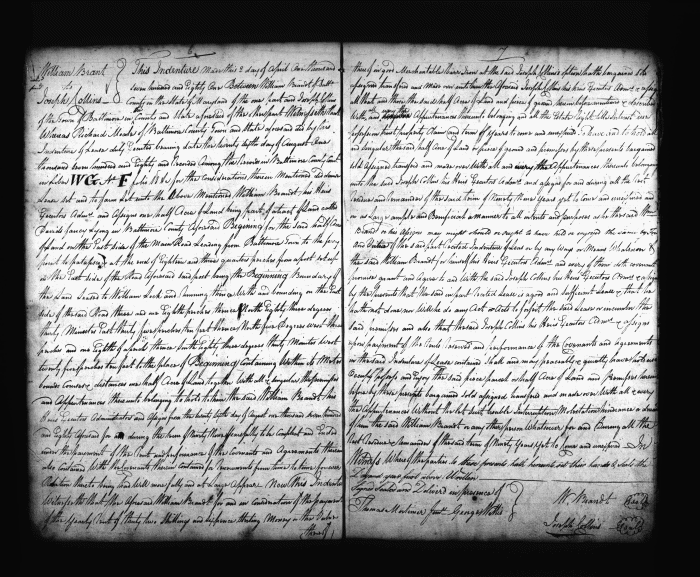 6
William Brant
to
Joseph Collins
This Indenture made this 3 day of April One thousand
seven hundred and Eighty One Between William Brandt of Balt.
County in the State of Maryland of the one part and Joseph Collins
of the Town of Baltimore in County and State aforesaid of the other part
Whereas Richard Meale of Baltimore County Town and State aforesaid did by his
Indenture of Lease duly Executed bearing date the twenty Day of August One
thousand seven hundred and Eighty and Recorded Among the Records in Baltimore County Court
in Liber WG No F folio 186 for the considerations therein Mentioned did demise
Lease set and to farm let unto the Above Mentioned William Brandt his Heirs
Executors Adms. and Assigns one half Acre of Land being part of a tract of Land called
Davids fancy Lying in Baltimore County Aforesaid Beginning for the said half Acre
of Land on the East side of the Main Road Leading from Baltimore Town to the ferry
point he patapsco at the end of Eighteen and three quarters perches from a post set up
on the East side of the Road Aforesaid said post being the Beginning Boundary of
the Land Leased to William Lock and running thence With and bounding on the East
side of the said Road three and one Eighth perches thence North Eighty three degrees
thirty Minutes East twenty five perches two feet thence North five Degrees West three
perches and one Eighth of a perch thence South Eighty three degrees thirty Minutes West
twenty five perches two feet to the place of Beginning Containing Within the Metes
bounds Courses & distances one half Acre of Land Together With all & singular the premises
and Appurtenances thereunto belonging to hold to him the said William Brandt his
Heirs Executors Administrators and Assigns from the day of August one thousand seven hundred
and Eighty Aforesaid for and during the term of Ninety Nine Years fully to be Compleat and Ended
under the payment of the Rent and performance of the Covenants and Agreements therein
also Contained With Covenants therein Contained for
Relation thereto being had Will more fully and at Large Appear Now this Indenture
Witnesseth that the Afore said William Brandt for and in Consideration of the payment
of the Yearly Rent of thirty two Shillings and sixpence Sterling Money or the Value
thereof
7
thereof in good Merchantable Bar Iron at the said Joseph Collins option hath bargained sold
assigned transfered and made over unto the Aforesaid Joseph Collins his Heirs Executors Adms. & assigns
all that and those the said half Acre of Land and piece of ground
With and Appurtenances thereunto belonging and all the Estate Right Title Interest use
possession property Claim and Term of Years to come and unexpired To have and to hold all
and singular the said half Acre of Land or piece of ground and premises hereby these presents bargained
sold assigned transfered and made over With all and every the Appurtenances thereunto belonging
unto the said Joseph Collins his Heirs Executors Adms. and assigns for and during all the rest
residue and remainder of the said Term of Ninety Nine Years yet to Come and unexpired and
in as Large Ample and Beneficial a manner to all intents and purposes as he the said Wm.
Brandt or his assigns may might should or ought to have held or enjoyed the same
and Virtue of the said part recited Indenture of Lease or by any Ways or Means Whatsoever &
the said William Brandt for himself his Heirs Executors Adms. and every of them doth covenant
promise grant and Agree to and With the said Joseph Collins his Heirs Executors Adms. & assigns
by these presents that the said in part recited Lease is a good and sufficient Lease & that he
hath not done nor Will he do any Act or Acts to forfeit the said Lease or encumber the
said premises and also that the said Joseph Collins his Heirs Executors Adms. & assigns
upon payment of the Rents reserved and performance of the Covenants and agreements
in the said Indenture of Lease contained shall and may peaceably & quietly have hold use
Occupy Possess and Enjoy the said piece parcel or half Acre of Land and premises
before by these presents bargained sold assigned transfered and made over With all & every
the Appurtenances Without the let suit trouble interruption Molestation hindrance or denial
from the said William Brandt or any other person Whatsoever for and during all the
rest residue & remainder of the said term of Ninety Years yet to Come and unexpired In
Witness Whereof the parties to these presents hath hereunto set their hands & seals the
Day and year first above Written
Signed Sealed and Deliverd in presence of
Thomas Mortimer Junr. George Welsh
Wm. Brandt (Seal)
Joseph Collins (Seal)